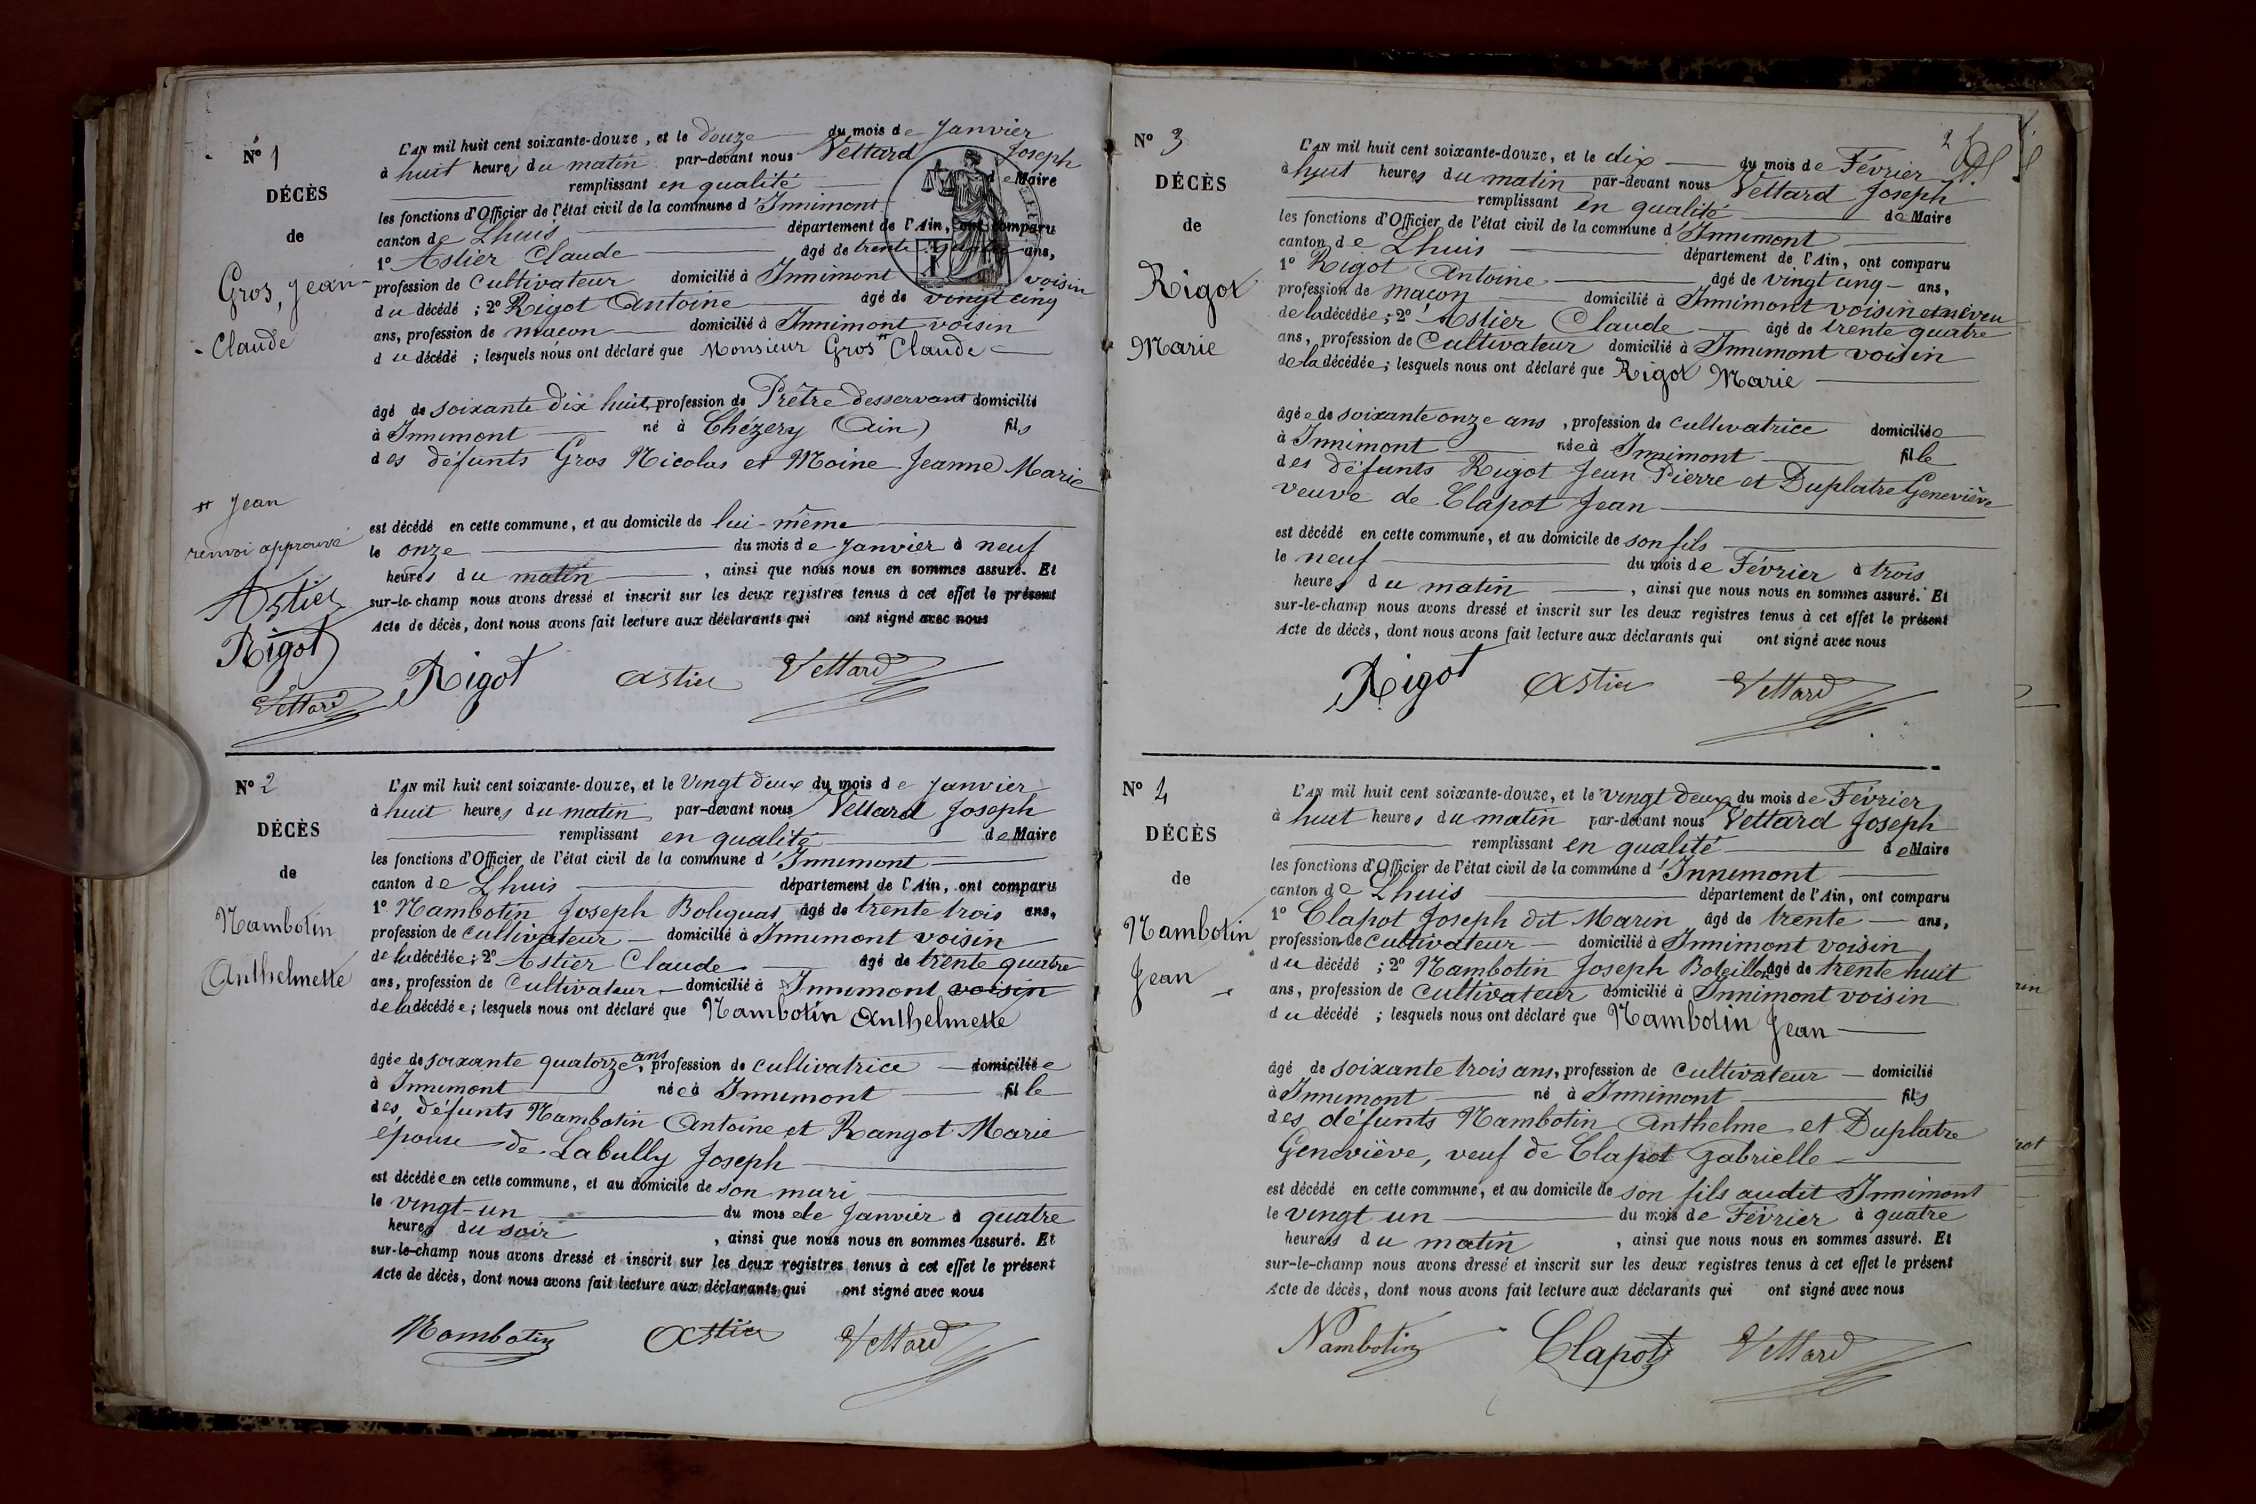 N° 1
DÉCÈS
de
Gros, Jean-
Claude
L'AN mil huit cent soixante-douze, et le douze du mois de Janvier
à huit heures du matin par-devant nous Vettard Joseph
remplissant en qualité de Maire
les fonctions d'Officier de l'état civil de la commune d'Innimont
canton de Lhuis département de l'Ain, ont comparu
1° Astier Claude âgé de trente quatre ans,
profession de Cultivateur domicilié à Innimont voisin
du décédé ; 2° Rigot Antoine âgé de vingt cinq
ans, profession de maçon domicilié à Innimont voisin
du décédé ; lesquels nous ont déclaré que Monsieur Gros Claude
âgé de soixante dix huit, profession de Prêtre desservant domicilié
à Innimont né à Chézery (Ain) fils
des défunts Gros Nicolas et Moine Jeanne Marie
Jean
renvoi approuvé
Astier
Rigot
Vettard
est décédé en cette commune, et au domicile de lui-même
le onze du mois de Janvier à neuf
heures du matin, ainsi que nous nous en sommes assuré. Et
sur-le-champ nous avons dressé et inscrit sur les deux registres tenus à cet effet le présent
Acte de décès, dont nous avons fait lecture aux déclarants qui ont signé avec nous
Rigot Astier Vettard
N° 2
DÉCÈS
de
Nambotin
Anthelmette
L'AN mil huit cent soixante-douze, et le Vingt deux du mois de Janvier
à huit heures du matin par-devant nous Vettard Joseph
remplissant en qualité de Maire
les fonctions d'Officier de l'état civil de la commune d'Innimont
canton de Lhuis département de l'Ain, ont comparu
1° Nambotin Joseph âgé de trente trois ans,
profession de cultivateur domicilié à Innimont voisin
de la décédée ; 2° Astier Claude âgé de trente quatre
ans, profession de Cultivateur domicilié à Innimont voisin
de la décédée ; lesquels nous ont déclaré que Nambotin Anthelmette
âgée de soixante quatorze ans, profession de cultivatrice domiciliée
à Innimont née à Innimont fille
des défunts Nambotin Antoine et Rangot Marie
épouse de Labully Joseph
est décédée en cette commune, et au domicile de son mari
le vingt-un du mois de Janvier à quatre
heures du soir, ainsi que nous nous en sommes assuré. Et
sur-le-champ nous avons dressé et inscrit sur les deux registres tenus à cet effet le présent
Acte de décès, dont nous avons fait lecture aux déclarants qui ont signé avec nous
Nambotin Astier Vettard
2
N° 3
DÉCÈS
de
Rigot
Marie
L'AN mil huit cent soixante-douze, et le dix du mois de Février
à huit heures du matin par-devant nous Vettard Joseph
remplissant en qualité de Maire
les fonctions d'Officier de l'état civil de la commune d'Innimont
canton de Lhuis département de l'Ain, ont comparu
1° Rigot Antoine âgé de vingt cinq ans,
profession de maçon domicilié à Innimont voisin et neveu
de la décédée ; 2° Astier Claude âgé de trente quatre
ans, profession de Cultivateur domicilié à Innimont voisin
de la décédée ; lesquels nous ont déclaré que Rigot Marie
âgée de soixante onze ans, profession de cultivatrice domiciliée
à Innimont née à Innimont fille
des défunts Rigot Jean Pierre et Duplatre Geneviève
veuve de Clapot Jean
est décédé en cette commune, et au domicile de son fils
le neuf du mois de Février à trois
heures du matin, ainsi que nous nous en sommes assuré. Et
sur-le-champ nous avons dressé et inscrit sur les deux registres tenus à cet effet le présent
Acte de décès, dont nous avons fait lecture aux déclarants qui ont signé avec nous
Rigot Astier Vettard
N° 4
DÉCÈS
de
Nambotin
Jean
L'AN mil huit cent soixante-douze, et le vingt deux du mois de Février
à huit heures du matin par-devant nous Vettard Joseph
remplissant en qualité de Maire
les fonctions d'Officier de l'état civil de la commune d'Innimont
canton de Lhuis département de l'Ain, ont comparu
1° Clapot Joseph dit Marin âgé de trente ans,
profession de cultivateur domicilié à Innimont voisin
du décédé ; 2° Nambotin Joseph âgé de trente huit
ans, profession de cultivateur domicilié à Innimont voisin
du décédé ; lesquels nous ont déclaré que Nambotin Jean
âgé de soixante trois ans, profession de Cultivateur domicilié
à Innimont né à Innimont fils
des défunts Nambotin Anthelme et Duplatre
Geneviève, veuf de Clapot Gabrielle
est décédé en cette commune, et au domicile de son fils audit Innimont
le vingt un du mois de Février à quatre
heures du matin, ainsi que nous nous en sommes assuré. Et
sur-le-champ nous avons dressé et inscrit sur les deux registres tenus à cet effet le présent
Acte de décès, dont nous avons fait lecture aux déclarants qui ont signé avec nous
Nambotin Clapot Vettard